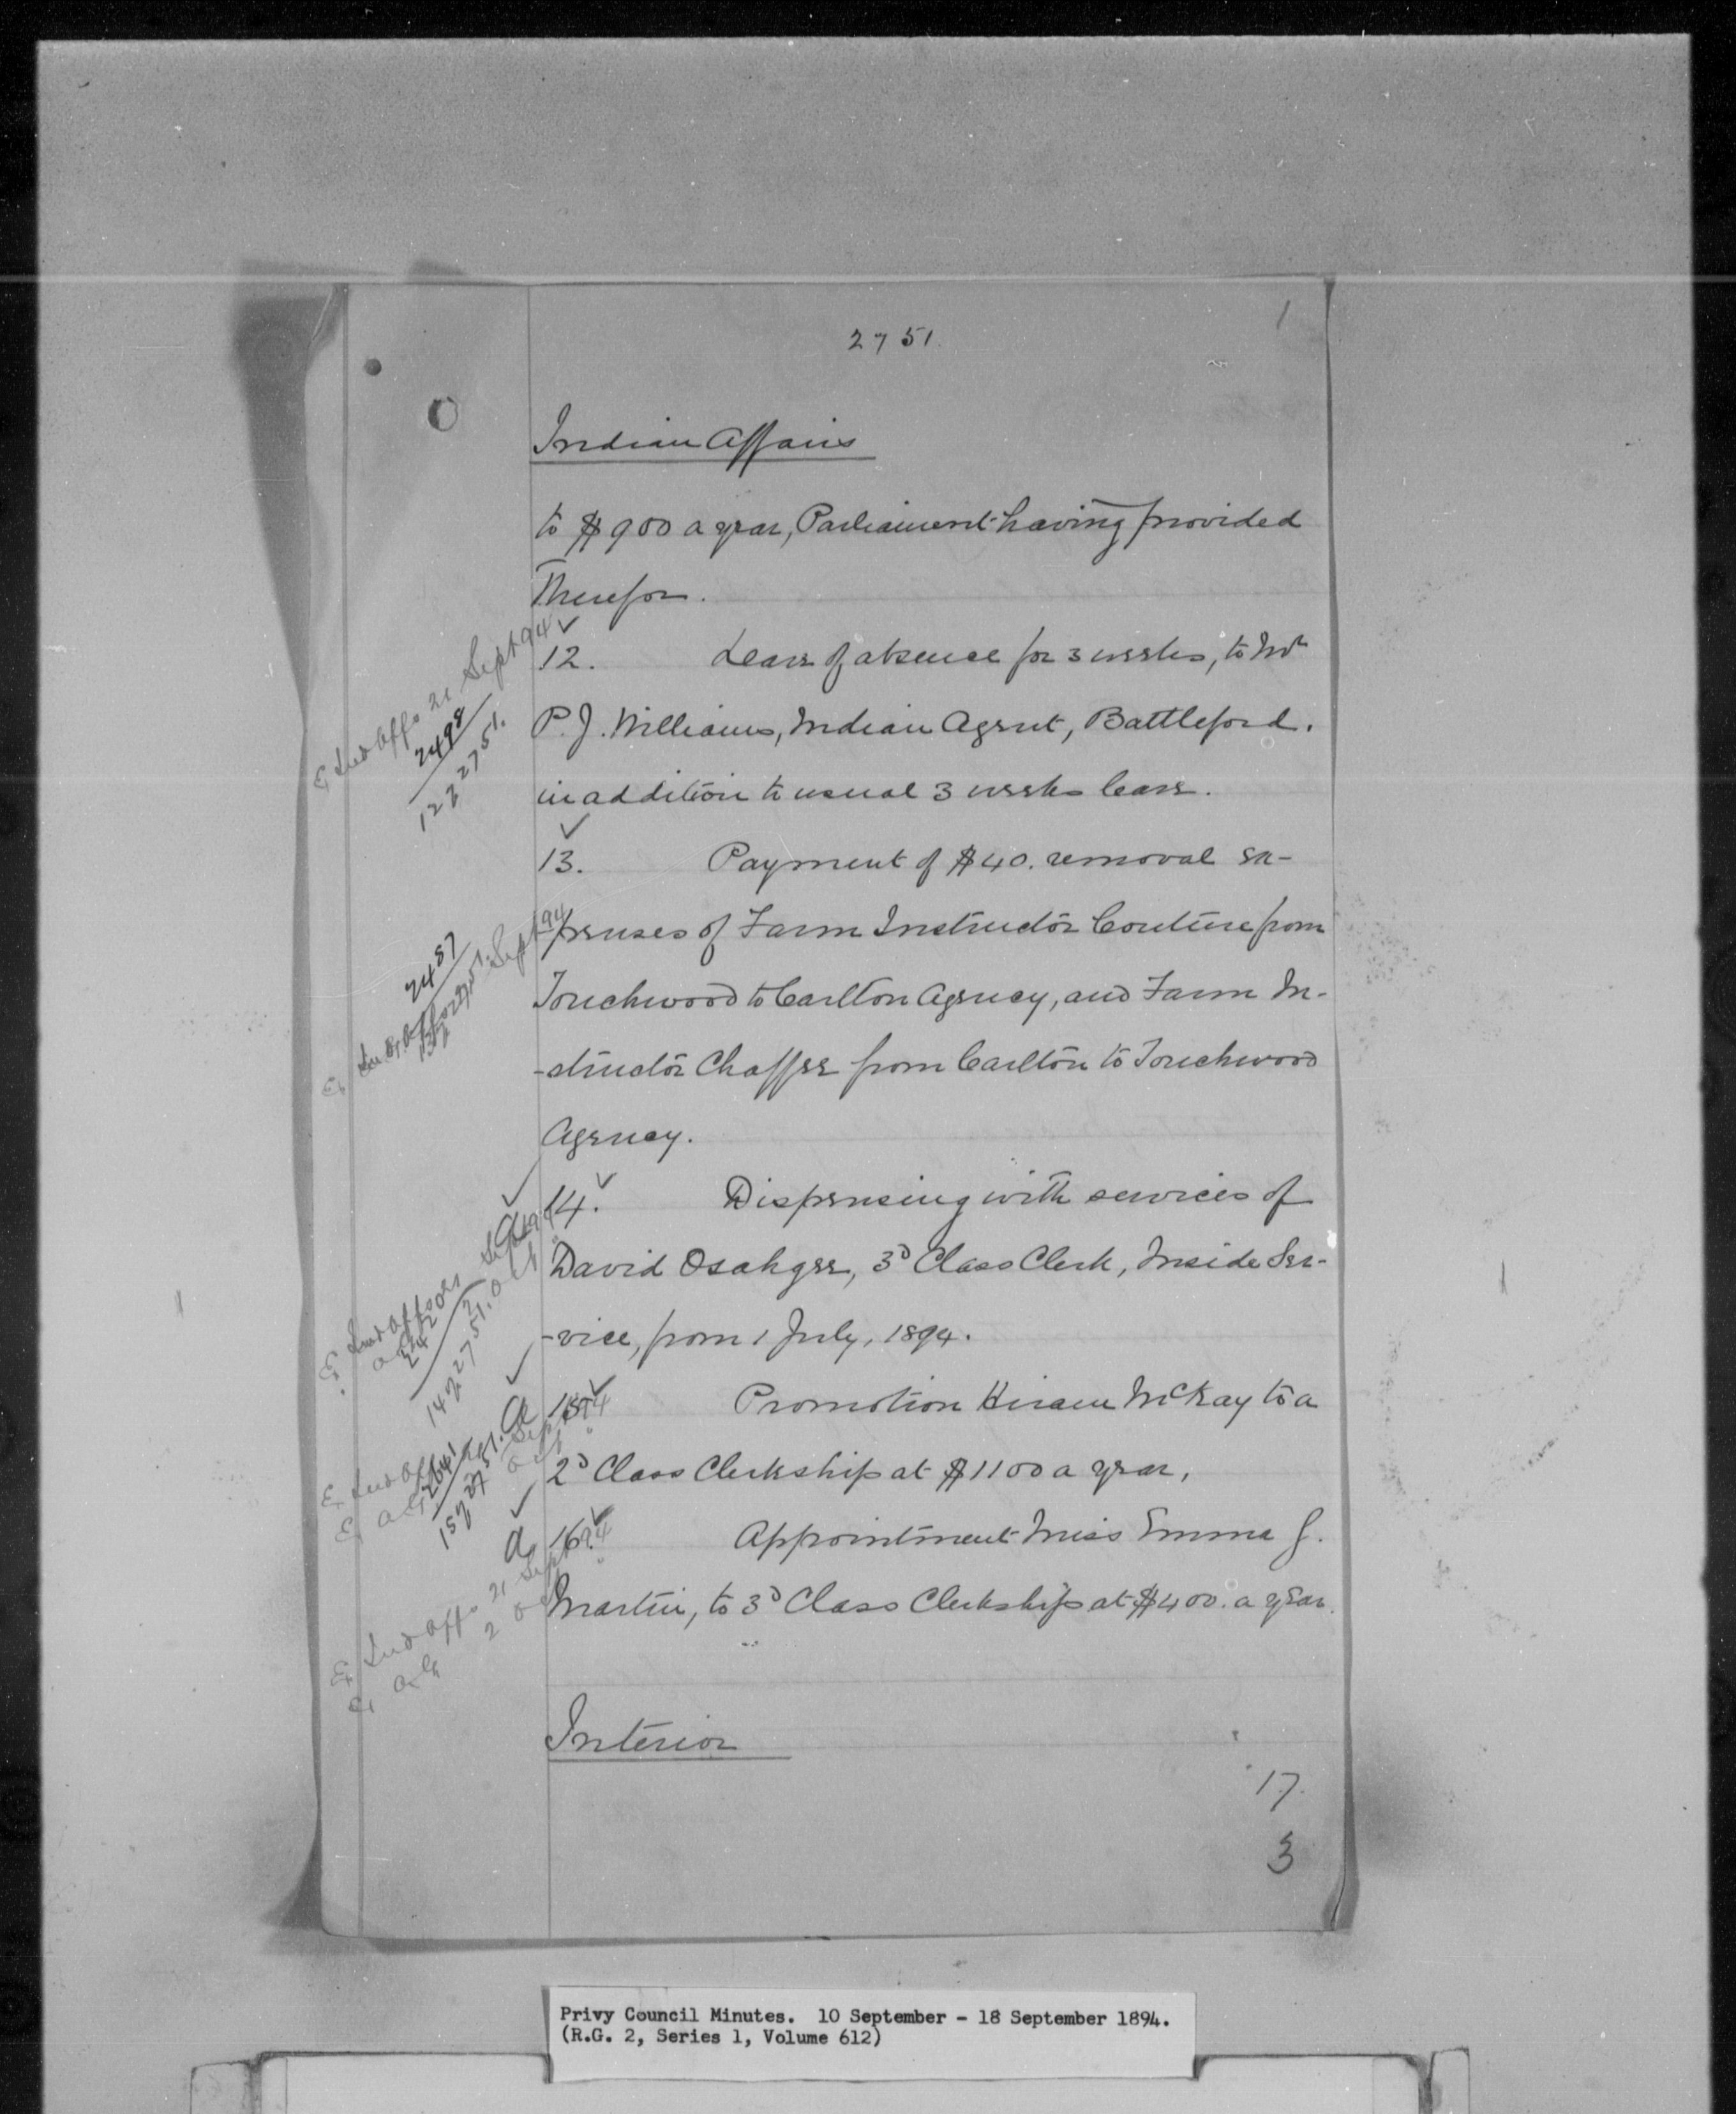 1
2751.
Indian Affairs
to $900 a year, Parliament having provided
therefor.
12. Leave of absence for 3 weeks, to Mr
P. J. Williams, Indian Agent, Battleford.
in addition to usual 3 weeks leave.
13. Payment of $40. removal ex-
penses of Farm Instructor Couture from
Touchwood to Carlton Agency, and Farm In-
-structor Chaffee from Carlton to Touchwood
Agency.
14. Dispensing with services of
David Osahgee, 3d Class Clerk, Inside Ser-
-vice, from 1 July, 1894.
15. Promotion Hiram McKay to a
2d Class Clerkship at $1100 a year,
16. Appointment Miss Emma J.
Martin, to 3d Class Clerkship at $400. a year.
Interior
17.
3
Ind Affs 21 Sept 94
2498
12/2751.
2487
Ind Affs Sept 94
Ind Affs Sept 94
14/2751.
Ind Affs
2641
15/2751.
Ind Affs 21 Sept 94
AG 2 Oct "
Privy Council Minutes. 10 September - 18 September 1894.
(R.G. 2, Series 1, Volume 612)